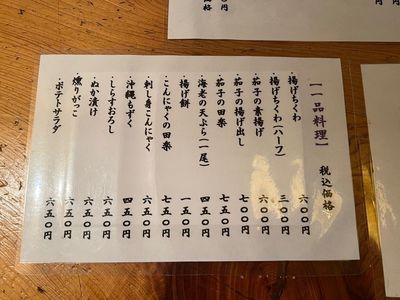 【一品料理】 税込価格
・揚げちくわ 六〇〇円
・揚げちくわ(ハーフ) 三〇〇円
・茄子の素揚げ 六〇〇円
・茄子の揚げ出し 七〇〇円
・茄子の田楽 七五〇円
・海老の天ぷら(一尾) 四五〇円
・揚げ餅 一五〇円
・こんにゃくの田楽 七五〇円
・刺し身こんにゃく 六五〇円
・沖縄もずく 四五〇円
・しらすおろし 六五〇円
・ぬか漬け 六五〇円
・燻りがっこ 六五〇円
・ポテトサラダ 六五〇円